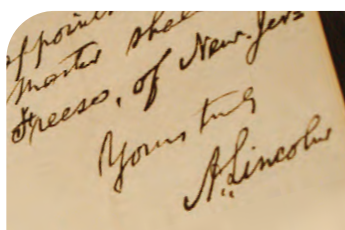 appoint
Master shall
Freese, of New-Jers
Yours truly
A. Lincoln